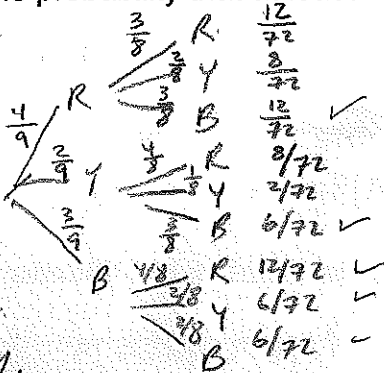 3/8 R 12/72
2/8 Y 8/72
4/9 R 3/8 B 12/72 ✓
4/8 R 8/72
2/9 Y 1/8 Y 2/72
3/8 B 6/72 ✓
3/9 B 4/8 R 12/72 ✓
2/8 Y 6/72 ✓
2/8 B 6/72 ✓